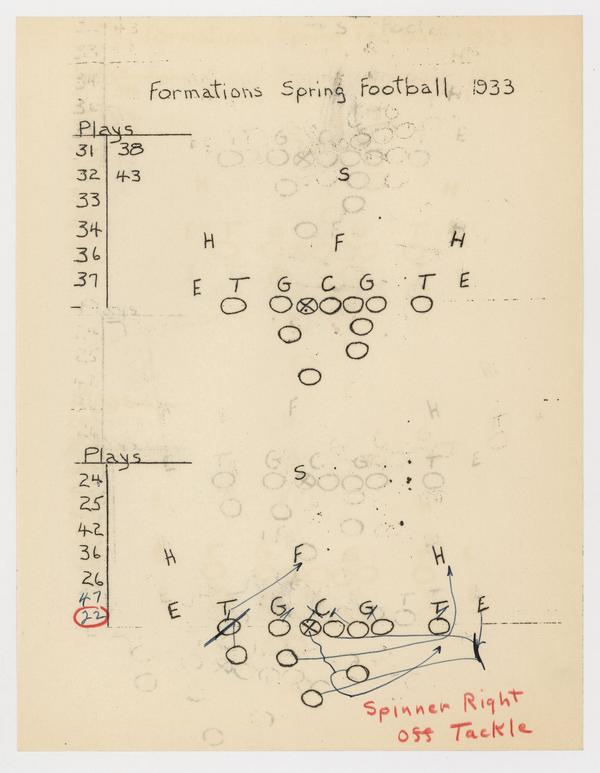 Formations Spring Football 1933
Plays
31 38
32 43
S
33
34
H F H
36
37
E T G C G T E
Plays
24
S
25
42
36
H F H
26
47
E T G C G T E
22
Spinner Right
Off Tackle